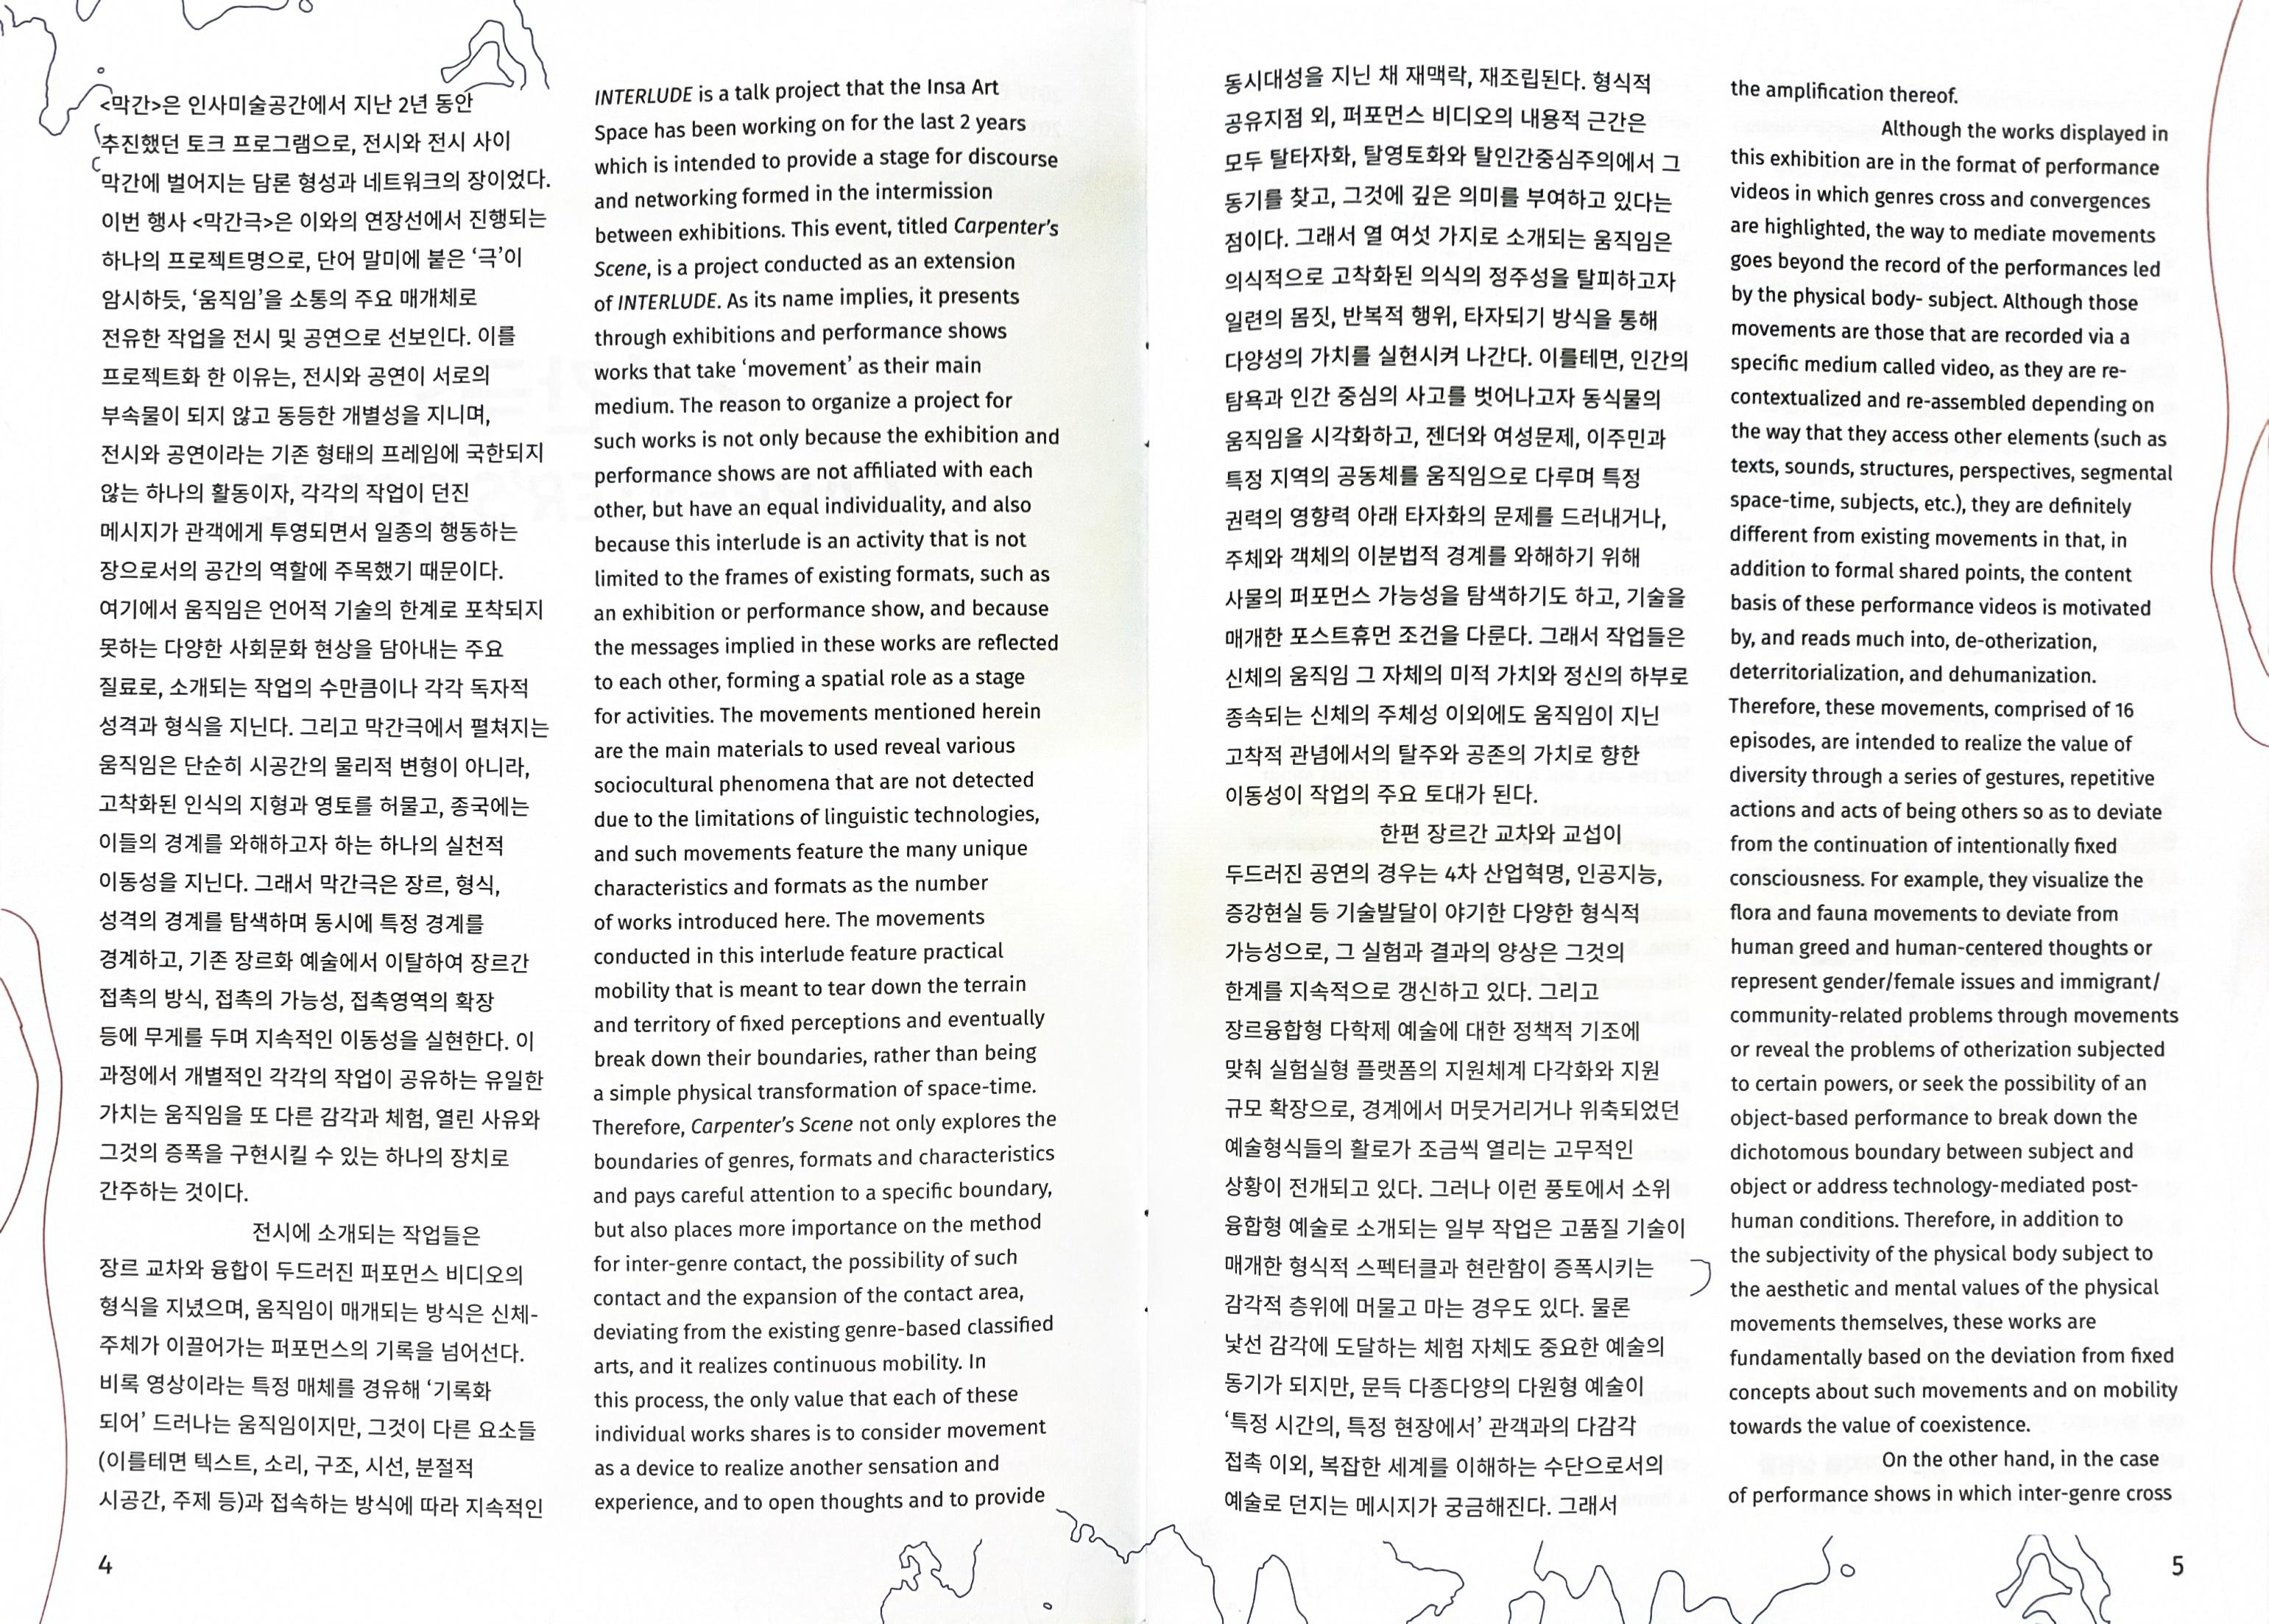 <막간>은 인사미술공간에서 지난 2년 동안
추진했던 토크 프로그램으로, 전시와 전시 사이
막간에 벌어지는 담론 형성과 네트워크의 장이었다.
이번 행사 <막간극>은 이와의 연장선에서 진행되는
하나의 프로젝트명으로, 단어 말미에 붙은 ‘극’이
암시하듯, ‘움직임’을 소통의 주요 매개체로
전유한 작업을 전시 및 공연으로 선보인다. 이를
프로젝트화 한 이유는, 전시와 공연이 서로의
부속물이 되지 않고 동등한 개별성을 지니며,
전시와 공연이라는 기존 형태의 프레임에 국한되지
않는 하나의 활동이자, 각각의 작업이 던진
메시지가 관객에게 투영되면서 일종의 행동하는
장으로서의 공간의 역할에 주목했기 때문이다.
여기에서 움직임은 언어적 기술의 한계로 포착되지
못하는 다양한 사회문화 현상을 담아내는 주요
질료로, 소개되는 작업의 수만큼이나 각각 독자적
성격과 형식을 지닌다. 그리고 막간극에서 펼쳐지는
움직임은 단순히 시공간의 물리적 변형이 아니라,
고착화된 인식의 지형과 영토를 허물고, 종국에는
이들의 경계를 와해하고자 하는 하나의 실천적
이동성을 지닌다. 그래서 막간극은 장르, 형식,
성격의 경계를 탐색하며 동시에 특정 경계를
경계하고, 기존 장르화 예술에서 이탈하여 장르간
접촉의 방식, 접촉의 가능성, 접촉영역의 확장
등에 무게를 두며 지속적인 이동성을 실현한다. 이
과정에서 개별적인 각각의 작업이 공유하는 유일한
가치는 움직임을 또 다른 감각과 체험, 열린 사유와
그것의 증폭을 구현시킬 수 있는 하나의 장치로
간주하는 것이다.
전시에 소개되는 작업들은
장르 교차와 융합이 두드러진 퍼포먼스 비디오의
형식을 지녔으며, 움직임이 매개되는 방식은 신체-
주체가 이끌어가는 퍼포먼스의 기록을 넘어선다.
비록 영상이라는 특정 매체를 경유해 ‘기록화
되어’ 드러나는 움직임이지만, 그것이 다른 요소들
(이를테면 텍스트, 소리, 구조, 시선, 분절적
시공간, 주제 등)과 접속하는 방식에 따라 지속적인
4
INTERLUDE is a talk project that the Insa Art
Space has been working on for the last 2 years
which is intended to provide a stage for discourse
and networking formed in the intermission
between exhibitions. This event, titled Carpenter’s
Scene, is a project conducted as an extension
of INTERLUDE. As its name implies, it presents
through exhibitions and performance shows
works that take ‘movement’ as their main
medium. The reason to organize a project for
such works is not only because the exhibition and
performance shows are not affiliated with each
other, but have an equal individuality, and also
because this interlude is an activity that is not
limited to the frames of existing formats, such as
an exhibition or performance show, and because
the messages implied in these works are reflected
to each other, forming a spatial role as a stage
for activities. The movements mentioned herein
are the main materials to used reveal various
sociocultural phenomena that are not detected
due to the limitations of linguistic technologies,
and such movements feature the many unique
characteristics and formats as the number
of works introduced here. The movements
conducted in this interlude feature practical
mobility that is meant to tear down the terrain
and territory of fixed perceptions and eventually
break down their boundaries, rather than being
a simple physical transformation of space-time.
Therefore, Carpenter’s Scene not only explores the
boundaries of genres, formats and characteristics
and pays careful attention to a specific boundary,
but also places more importance on the method
for inter-genre contact, the possibility of such
contact and the expansion of the contact area,
deviating from the existing genre-based classified
arts, and it realizes continuous mobility. In
this process, the only value that each of these
individual works shares is to consider movement
as a device to realize another sensation and
experience, and to open thoughts and to provide
동시대성을 지닌 채 재맥락, 재조립된다. 형식적
공유지점 외, 퍼포먼스 비디오의 내용적 근간은
모두 탈타자화, 탈영토화와 탈인간중심주의에서 그
동기를 찾고, 그것에 깊은 의미를 부여하고 있다는
점이다. 그래서 열 여섯 가지로 소개되는 움직임은
의식적으로 고착화된 의식의 정주성을 탈피하고자
일련의 몸짓, 반복적 행위, 타자되기 방식을 통해
다양성의 가치를 실현시켜 나간다. 이를테면, 인간의
탐욕과 인간 중심의 사고를 벗어나고자 동식물의
움직임을 시각화하고, 젠더와 여성문제, 이주민과
특정 지역의 공동체를 움직임으로 다루며 특정
권력의 영향력 아래 타자화의 문제를 드러내거나,
주체와 객체의 이분법적 경계를 와해하기 위해
사물의 퍼포먼스 가능성을 탐색하기도 하고, 기술을
매개한 포스트휴먼 조건을 다룬다. 그래서 작업들은
신체의 움직임 그 자체의 미적 가치와 정신의 하부로
종속되는 신체의 주체성 이외에도 움직임이 지닌
고착적 관념에서의 탈주와 공존의 가치로 향한
이동성이 작업의 주요 토대가 된다.
한편 장르간 교차와 교섭이
두드러진 공연의 경우는 4차 산업혁명, 인공지능,
증강현실 등 기술발달이 야기한 다양한 형식적
가능성으로, 그 실험과 결과의 양상은 그것의
한계를 지속적으로 갱신하고 있다. 그리고
장르융합형 다학제 예술에 대한 정책적 기조에
맞춰 실험실형 플랫폼의 지원체계 다각화와 지원
규모 확장으로, 경계에서 머뭇거리거나 위축되었던
예술형식들의 활로가 조금씩 열리는 고무적인
상황이 전개되고 있다. 그러나 이런 풍토에서 소위
융합형 예술로 소개되는 일부 작업은 고품질 기술이
매개한 형식적 스펙터클과 현란함이 증폭시키는
감각적 층위에 머물고 마는 경우도 있다. 물론
낯선 감각에 도달하는 체험 자체도 중요한 예술의
동기가 되지만, 문득 다종다양의 다원형 예술이
‘특정 시간의, 특정 현장에서’ 관객과의 다감각
접촉 이외, 복잡한 세계를 이해하는 수단으로서의
예술로 던지는 메시지가 궁금해진다. 그래서
the amplification thereof.
Although the works displayed in
this exhibition are in the format of performance
videos in which genres cross and convergences
are highlighted, the way to mediate movements
goes beyond the record of the performances led
by the physical body- subject. Although those
movements are those that are recorded via a
specific medium called video, as they are re-
contextualized and re-assembled depending on
the way that they access other elements (such as
texts, sounds, structures, perspectives, segmental
space-time, subjects, etc.), they are definitely
different from existing movements in that, in
addition to formal shared points, the content
basis of these performance videos is motivated
by, and reads much into, de-otherization,
deterritorialization, and dehumanization.
Therefore, these movements, comprised of 16
episodes, are intended to realize the value of
diversity through a series of gestures, repetitive
actions and acts of being others so as to deviate
from the continuation of intentionally fixed
consciousness. For example, they visualize the
flora and fauna movements to deviate from
human greed and human-centered thoughts or
represent gender/female issues and immigrant/
community-related problems through movements
or reveal the problems of otherization subjected
to certain powers, or seek the possibility of an
object-based performance to break down the
dichotomous boundary between subject and
object or address technology-mediated post-
human conditions. Therefore, in addition to
the subjectivity of the physical body subject to
the aesthetic and mental values of the physical
movements themselves, these works are
fundamentally based on the deviation from fixed
concepts about such movements and on mobility
towards the value of coexistence.
On the other hand, in the case
of performance shows in which inter-genre cross
5